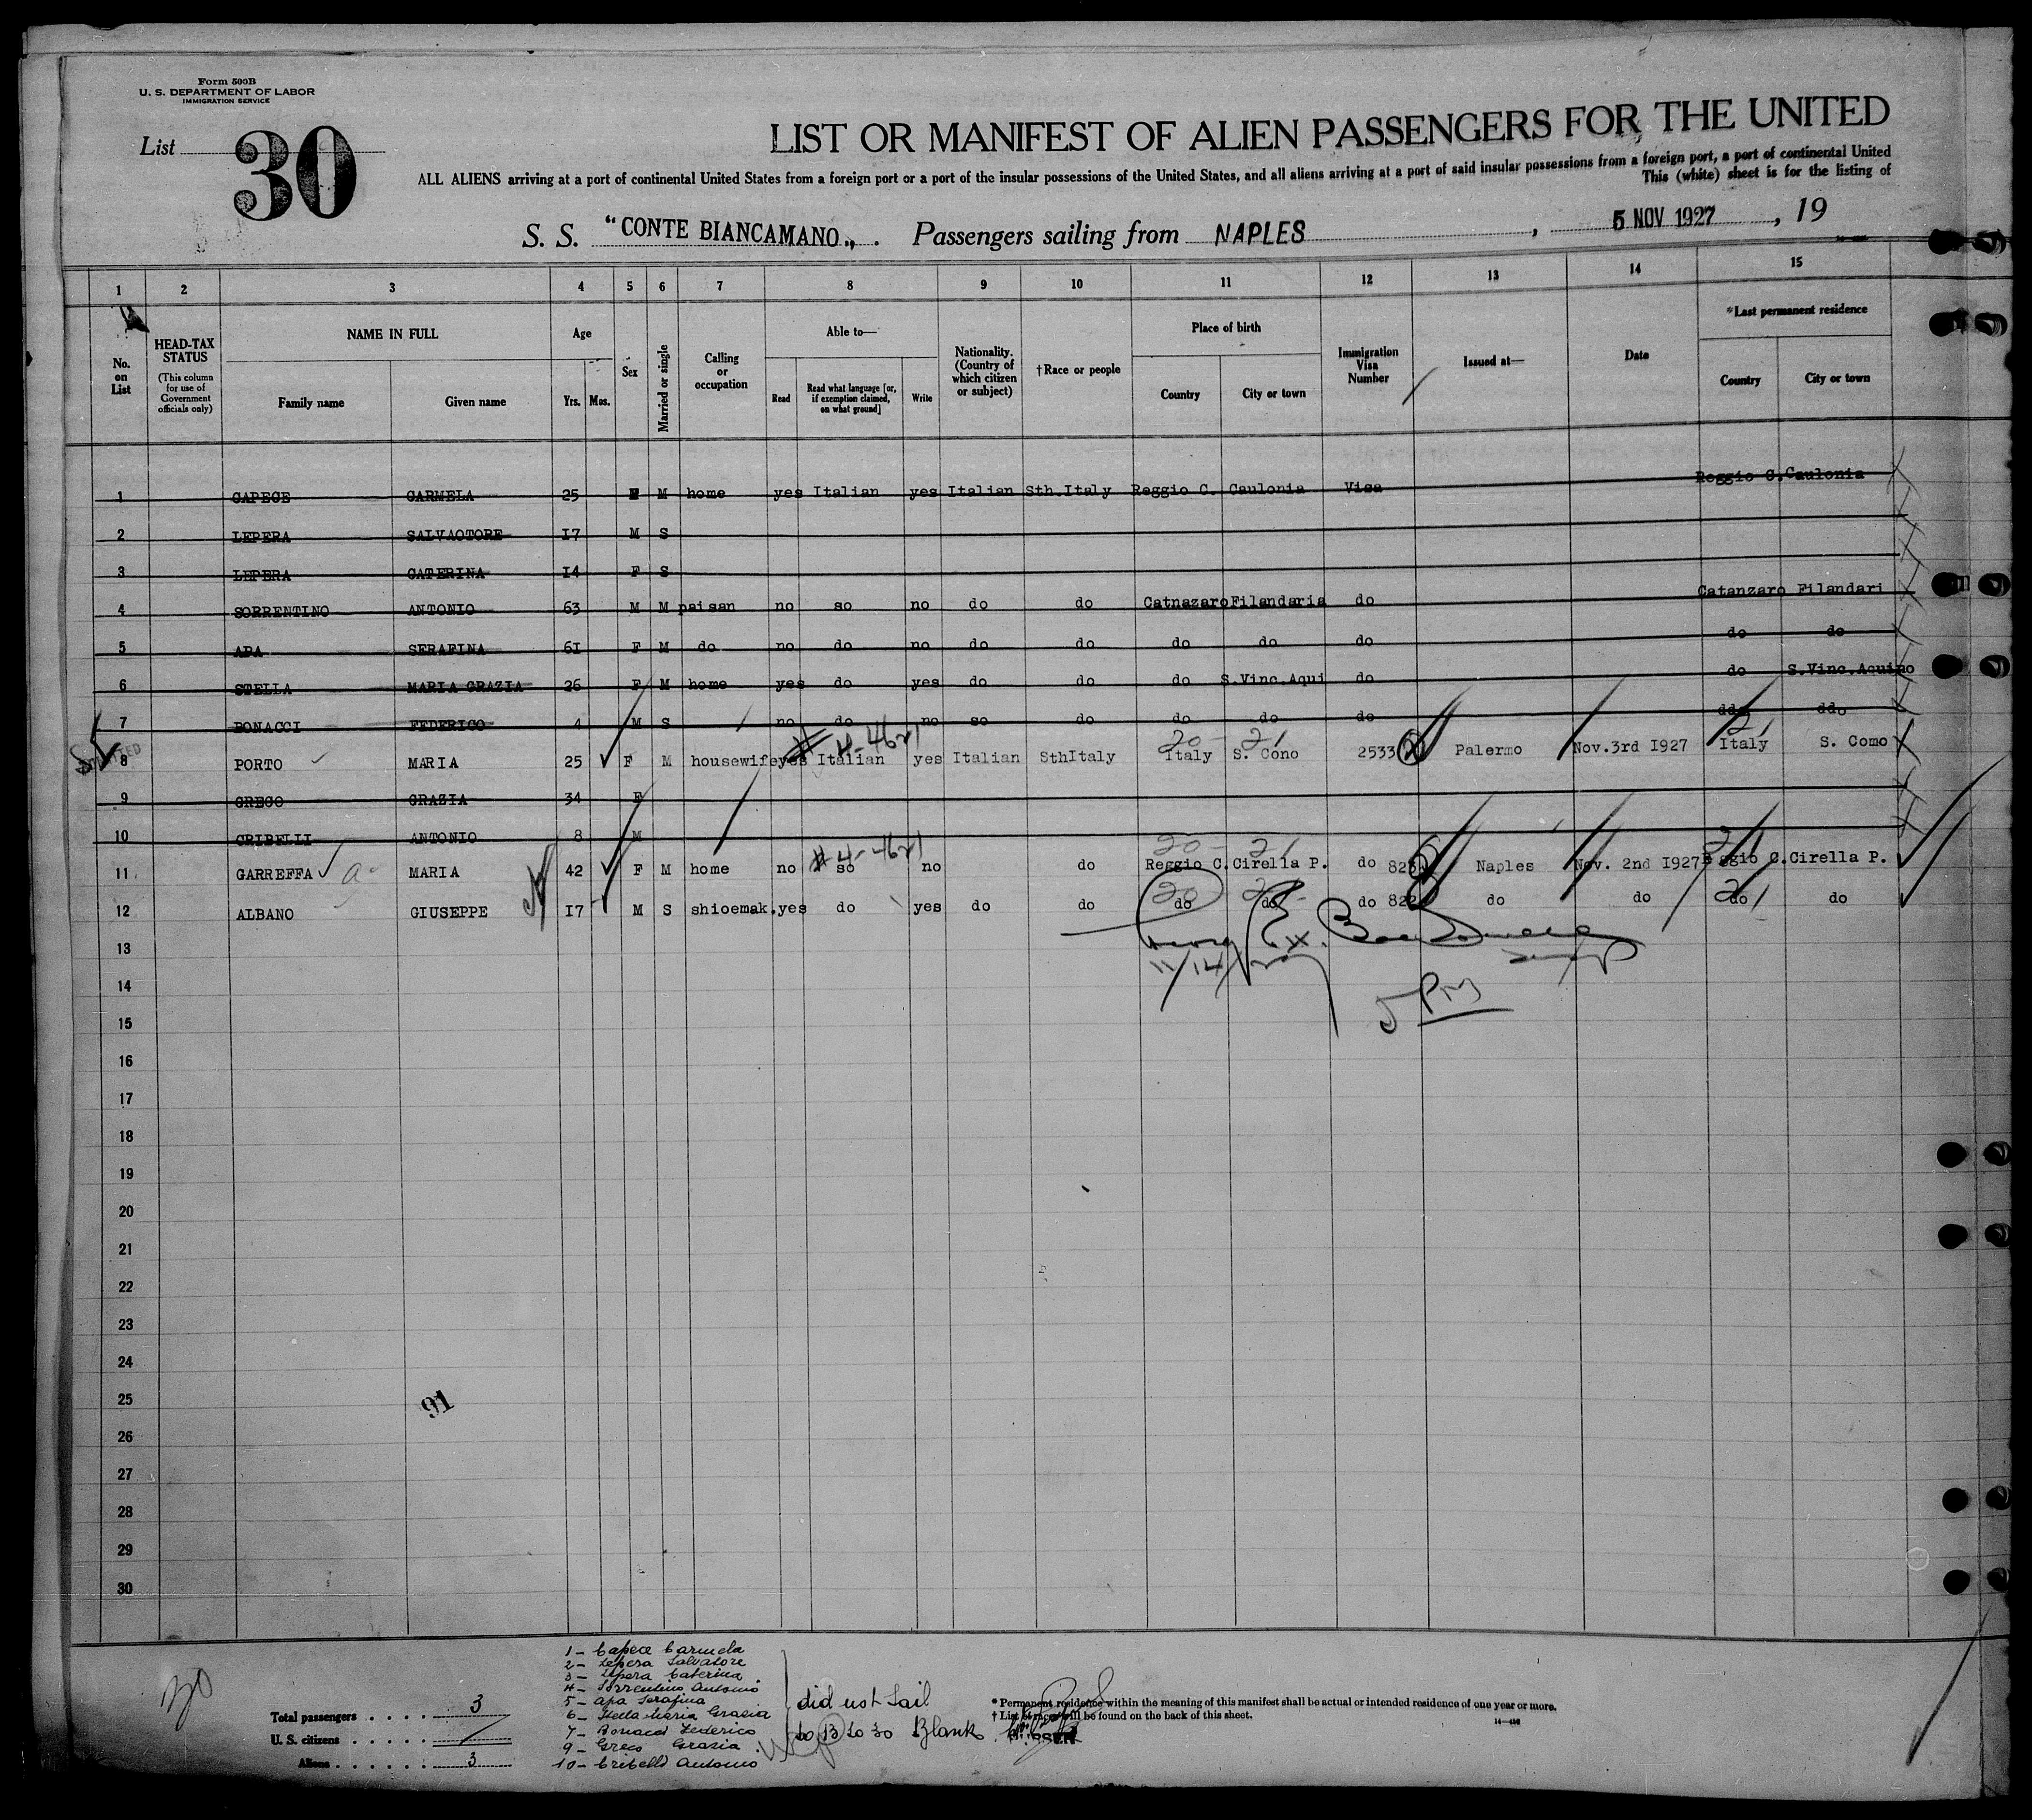 Form 500B
U. S. DEPARTMENT OF LABOR
IMMIGRATION SERVICE
List 30
LIST OR MANIFEST OF ALIEN PASSENGERS FOR THE UNITED
ALL ALIENS arriving at a port of continental United States from a foreign port or a port of the insular possessions of the United States, and all aliens arriving at a port of said insular possessions from a foreign port, a port of continental United
This (white) sheet is for the listing of
S. S. "CONTE BIANCAMANO,, . Passengers sailing from NAPLES , 5 NOV 1927 , 19
1 2 3 4 5 6 7 8 9 10 11 12 13 14 15
No. on List
HEAD-TAX STATUS (This column for use of Government officials only)
NAME IN FULL Family name Given name
Age Yrs. Mos.
Sex
Married or single
Calling or occupation
Able to— Read Read what language [or, if exemption claimed, on what ground] Write
Nationality. (Country of which citizen or subject)
†Race or people
Place of birth Country City or town
Immigration Visa Number
Issued at—
Date
*Last permanent residence Country City or town
1 CAPECE CARMELA 25 F M home yes Italian yes Italian Sth.Italy Reggio C. Caulonia Visa Reggio C. Caulonia
2 LEPERA SALVAOTORE I7 M S
3 LEPERA CATERINA I4 F S
4 SORRENTINO ANTONIO 63 M M paisan no so no do do Catnazaro Filandaria do Catanzaro Filandari
5 APA SERAFINA 6I F M do no do no do do do do do do do
6 STELLA MARIA GRAZIA 26 F M home yes do yes do do do S.Vinc.Aqui do do S.Vinc.Aquino
7 BONACCI FEDERICO 4 M S no do no so do do do do ddo ddo
#-4-4621 20- 21 21
8 PORTO MARIA 25 F M housewife yes Italian yes Italian SthItaly Italy S. Cono 2533 Palermo Nov.3rd I927 Italy S. Como
9 GRECO GRAZIA 34 F
10 CRIBELLI ANTONIO 8 M
#-4-4621 20- 21
11 GARREFFA MARIA 42 F M home no so no do Reggio C. Cirella P. do 823 Naples Nov. 2nd I927 Reggio C. Cirella P.
20 21
12 ALBANO GIUSEPPE I7 M S shioemak. yes do yes do do do do do 822 do do do do
13
11/14/
14
5 PM
15
16
17
18
19
20
21
22
23
24
25
91
26
27
28
29
30
1- Capece Carmela
2- Lepera Salvatore
3- Lepera Caterina
4- Sorrentino Antonio
5- Apa Serafina
6- Stella Maria Grazia
7- Bonacci Federico
9- Greco Grazia
10- Cribelli Antonio
did not sail
to 13 to 30 Blank
Total passengers . . . . . 3
U. S. citizens . . . . .
Aliens . . . . . . 3
* Permanent residence within the meaning of this manifest shall be actual or intended residence of one year or more.
† List of races will be found on the back of this sheet.